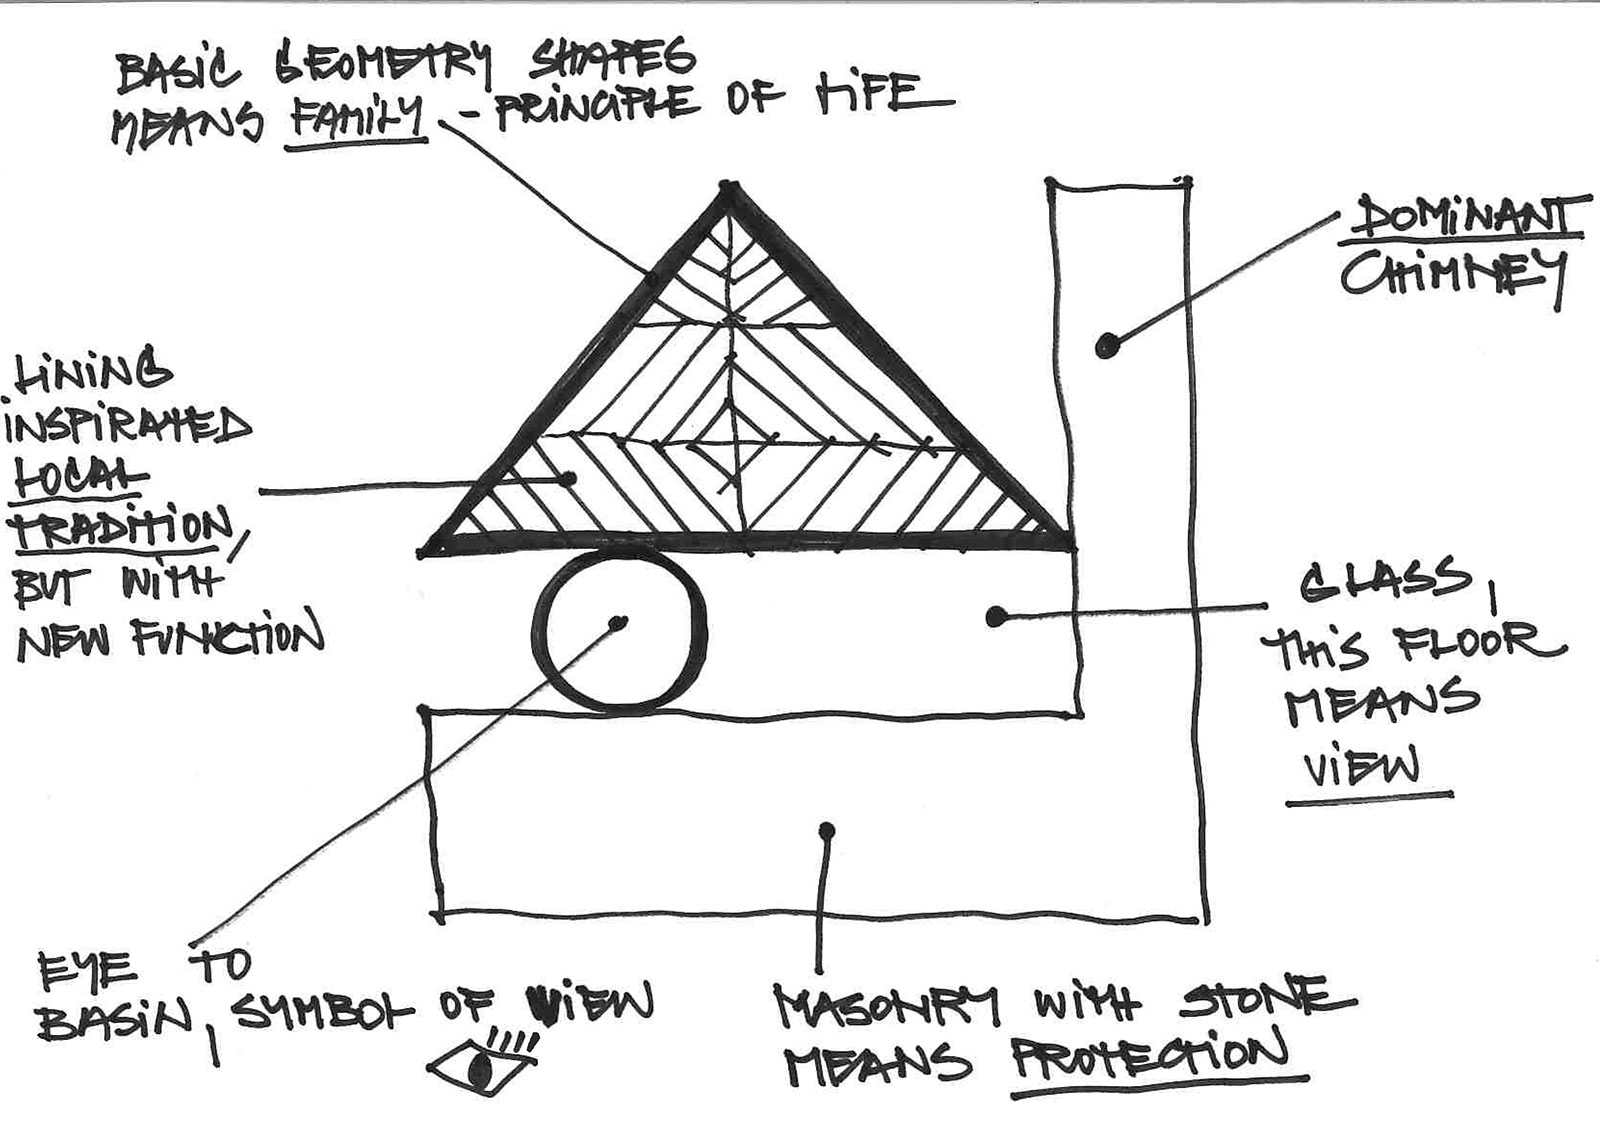 BASIC GEOMETRY SHAPES
MEANS FAMILY - PRINCIPLE OF LIFE
DOMINANT
CHIMNEY
LINING
INSPIRATED
LOCAL
TRADITION,
BUT WITH
NEW FUNCTION
GLASS,
THIS FLOOR
MEANS
VIEW
EYE TO
BASIN, SYMBOL OF VIEW
MASONRY WITH STONE
MEANS PROTECTION